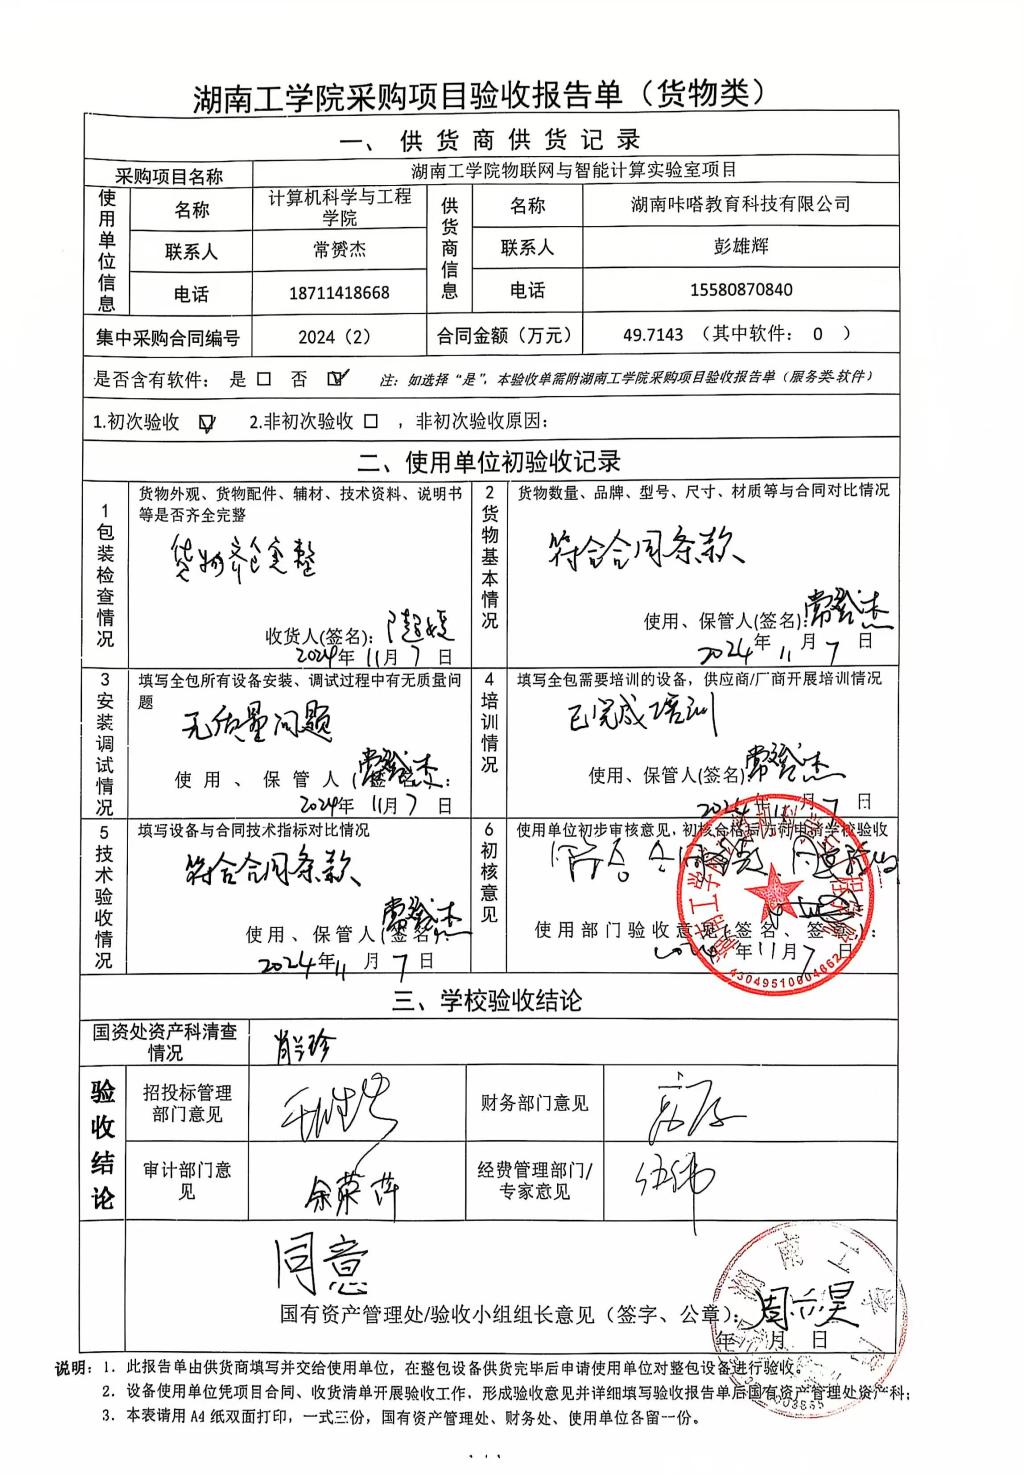 湖南工学院采购项目验收报告单（货物类）
一、供货商供货记录
采购项目名称 湖南工学院物联网与智能计算实验室项目
使用单位信息 名称 计算机科学与工程学院 供货商信息 名称 湖南咔嗒教育科技有限公司
联系人 常赟杰 联系人 彭雄辉
电话 18711418668 电话 15580870840
集中采购合同编号 2024（2） 合同金额（万元） 49.7143 （其中软件： 0 ）
是否含有软件： 是 □ 否 ☑ 注：如选择“是”，本验收单需附湖南工学院采购项目验收报告单（服务类-软件）
1.初次验收 ☑ 2.非初次验收 □ ，非初次验收原因：
二、使用单位初验收记录
1包装检查情况
货物外观、货物配件、辅材、技术资料、说明书
等是否齐全完整
货物齐全完整
收货人(签名)：
2024年11月7日
2货物基本情况
货物数量、品牌、型号、尺寸、材质等与合同对比情况
符合合同条款
使用、保管人(签名)：常赟杰
2024年11月7日
3安装调试情况
填写全包所有设备安装、调试过程中有无质量问
题
无质量问题
使用、保管人（签名）：常赟杰
2024年11月7日
4培训情况
填写全包需要培训的设备，供应商/厂商开展培训情况
已完成培训
使用、保管人(签名)常赟杰
2024年11月7日
5技术验收情况
填写设备与合同技术指标对比情况
符合合同条款
使用、保管人(签名)：常赟杰
2024年11月7日
6初核意见
使用单位初步审核意见，初核合格后方可申请学校验收
符合合同
使用部门验收意见（签名、签章）：
2024年11月7日
43049510004662
三、学校验收结论
国资处资产科清查情况 肖兰珍
验收结论
招投标管理部门意见
财务部门意见
审计部门意见 余荣萍
经费管理部门/专家意见 伍伟
同意
国有资产管理处/验收小组组长意见（签字、公章）：
年 月 日
湖南工学院
说明：1．此报告单由供货商填写并交给使用单位，在整包设备供货完毕后申请使用单位对整包设备进行验收。
2．设备使用单位凭项目合同、收货清单开展验收工作，形成验收意见并详细填写验收报告单后国有资产管理处资产科；
3．本表请用 A4 纸双面打印，一式三份，国有资产管理处、财务处、使用单位各留一份。